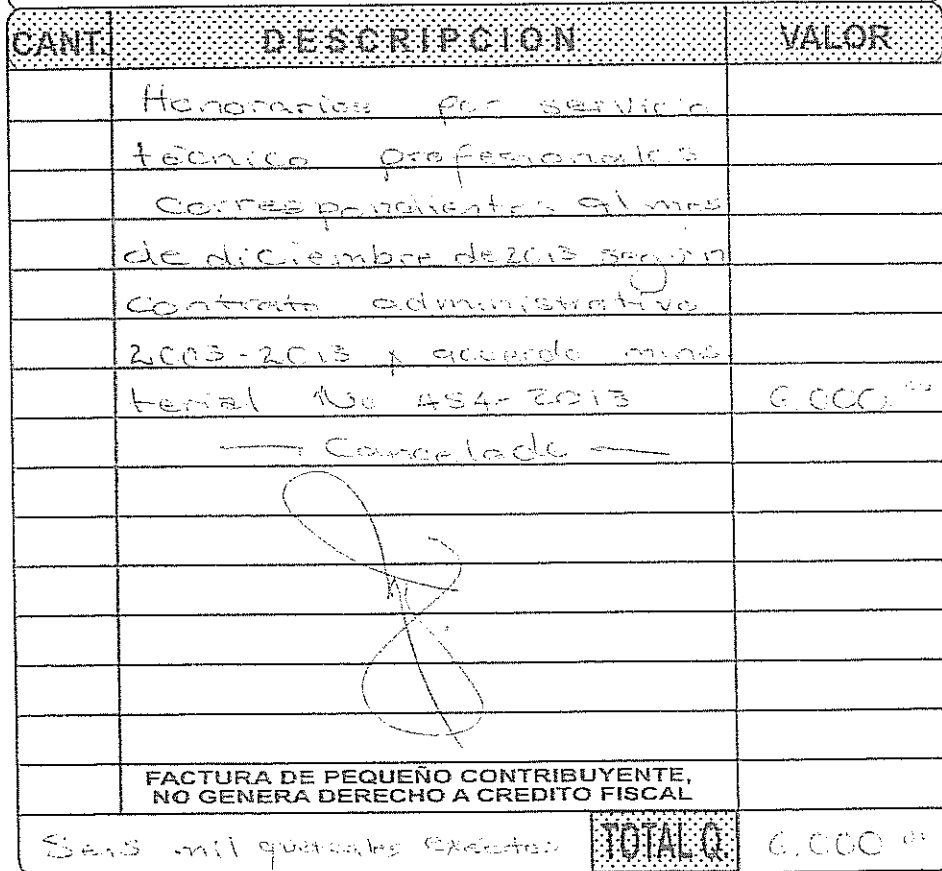 CANT. DESCRIPCION VALOR
Honorarios por servicio
técnico profesionales
Correspondientes al mes
de diciembre de 2013 según
Contrato administrativo
2003-2013 y acuerdo minis
terial No 454-2013 6.000.00
— Cancelado —
FACTURA DE PEQUEÑO CONTRIBUYENTE,
NO GENERA DERECHO A CREDITO FISCAL
Seis mil quetzales exactos TOTAL Q. 6.000.00